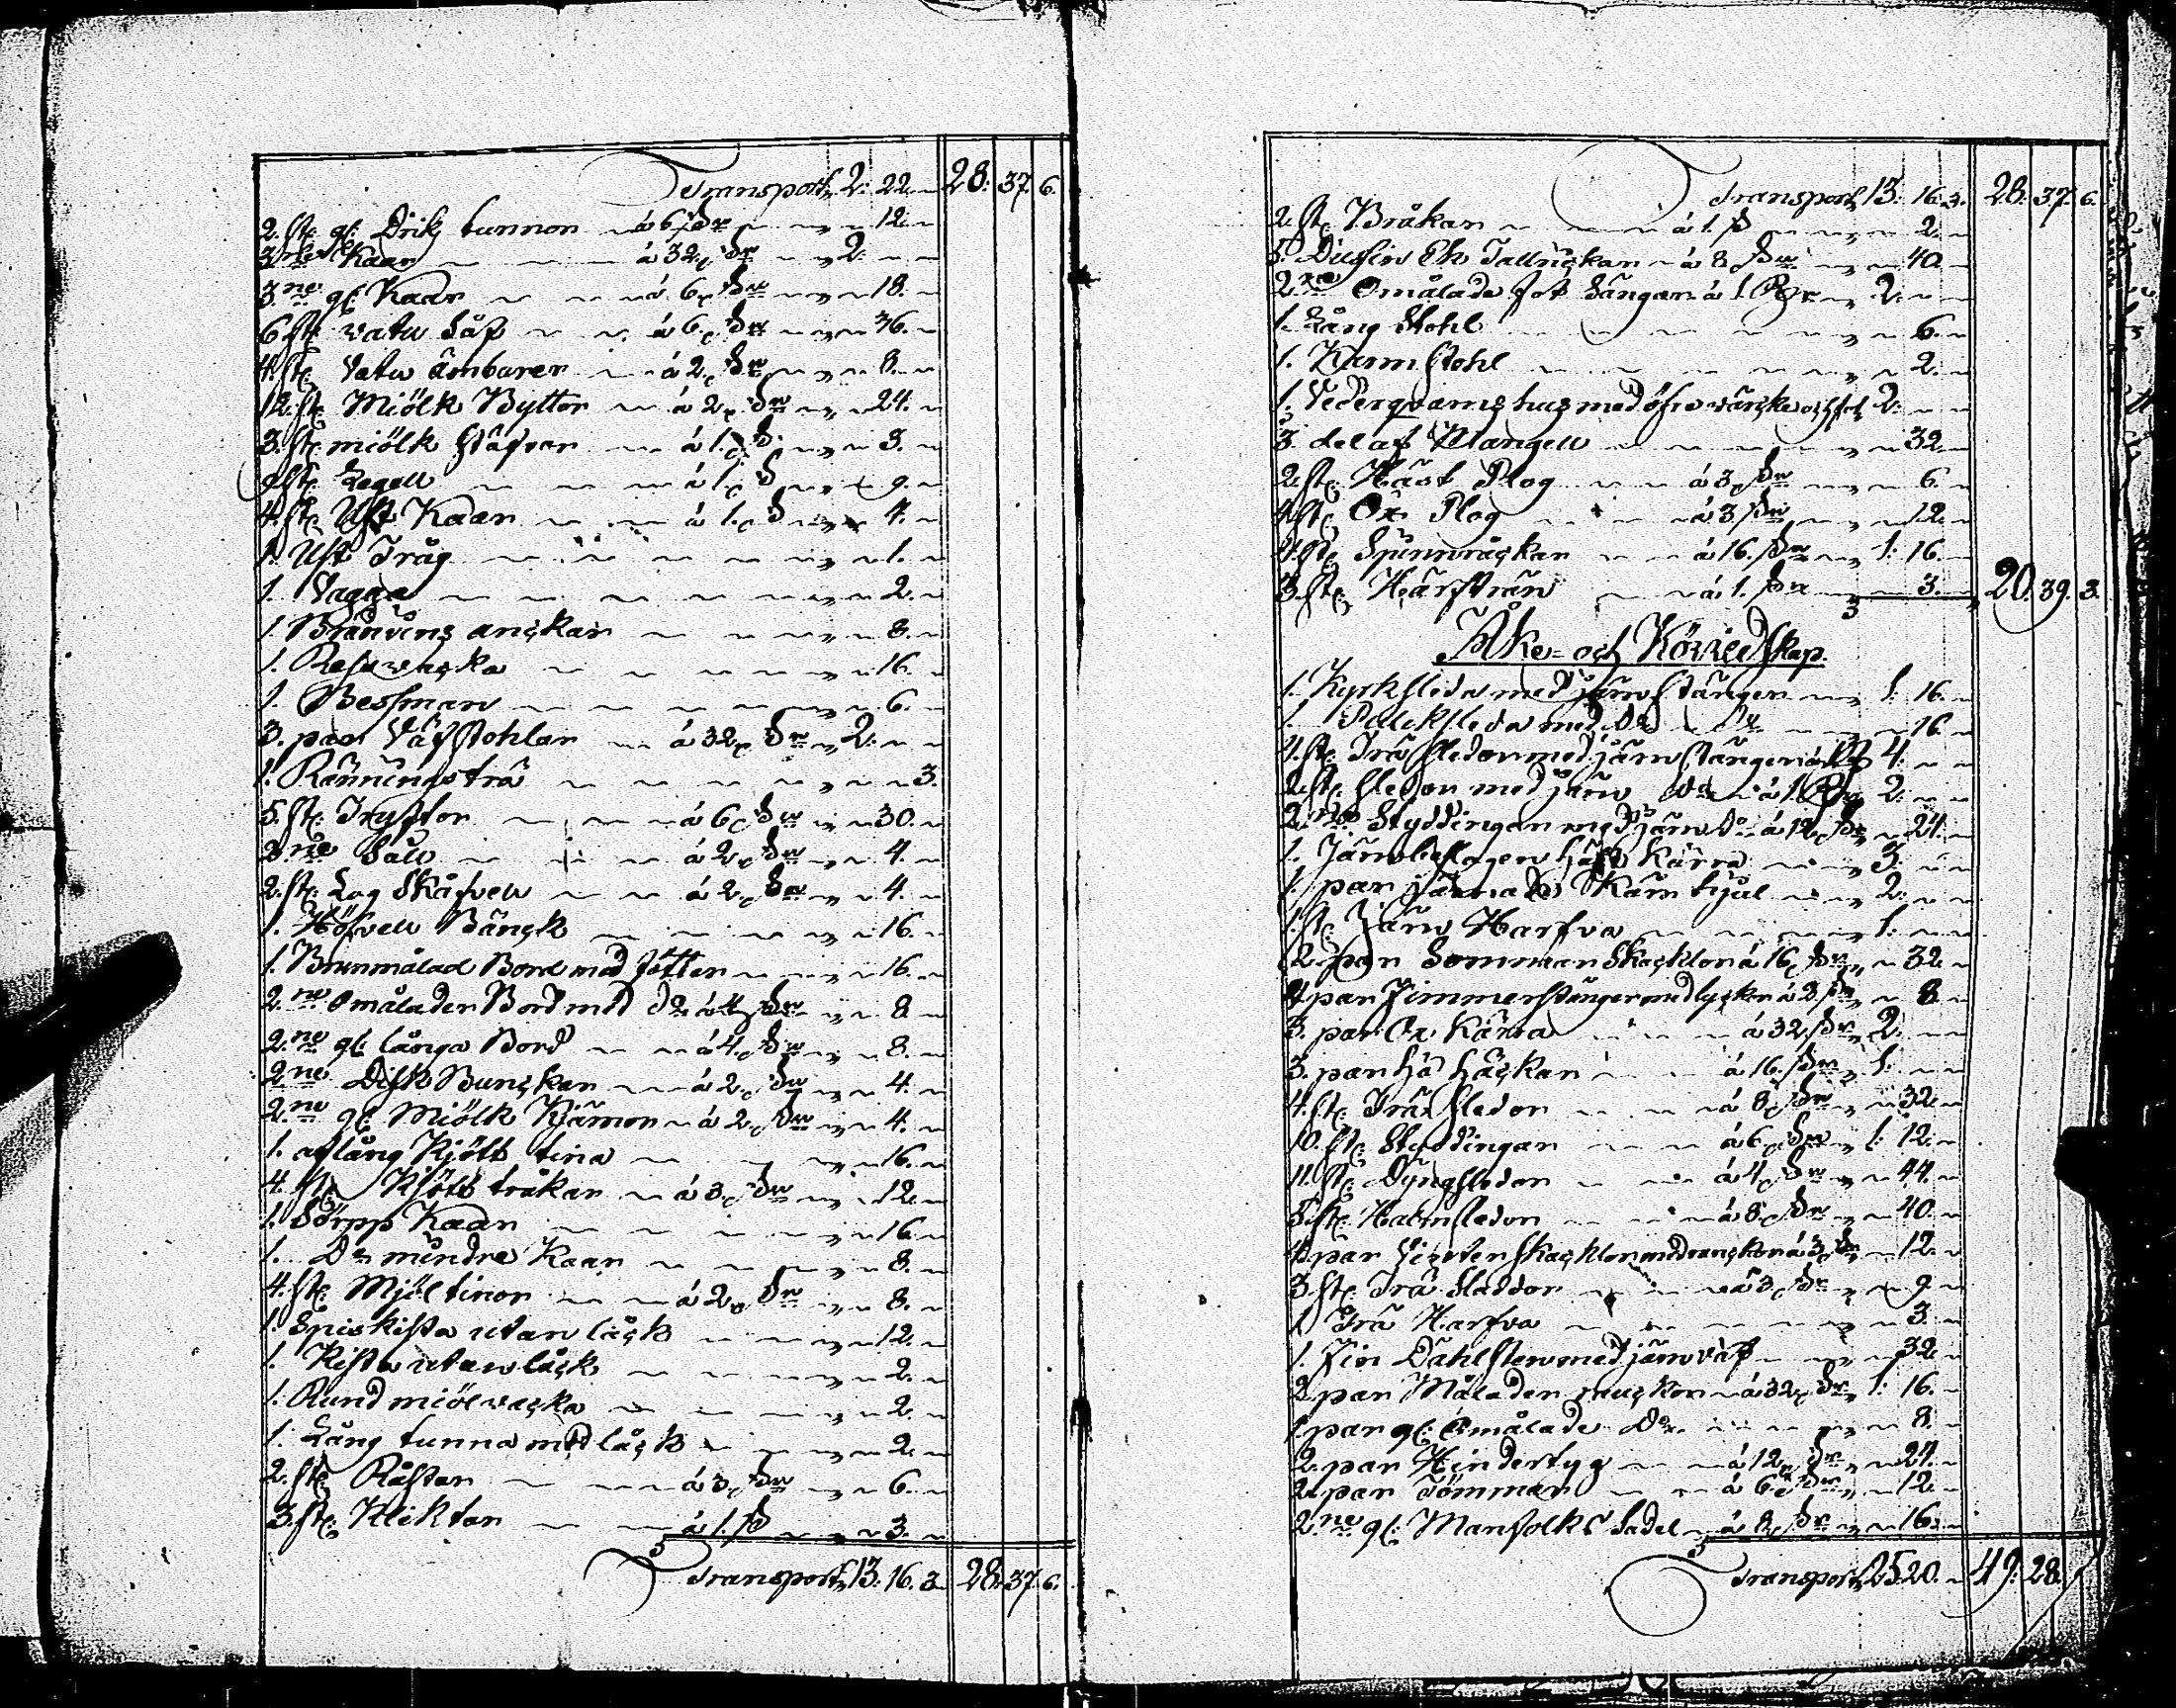 Transport 2: 22. 28: 37. 6.
2. st: gl: Drik tunnor á 6 sk 12.
3ne st Kaar á 32. sk 2.
3ne gl: Kaar á 6. sk 18.
6 st: vatu Såf á 6. sk 36.
4. st: Vatu ämbarer á 2. sk 8.
12. st: Miölk Byttor á 2. sk 24.
3. st: miölk Stäfvor á 1. s 3.
9 st: Legell á 1. s 9.
4. st: Ust Kaar á 1. s 4.
1. Ust Tråg 1.
1. Vagga 2.
1. Bränvins anckar 8.
1. Resevacka 16.
1. Bessman 6.
3. par Väfstohlar á 32. sk 2.
1. Ränningsträ 3.
5. st: Trystor á 6. sk 30.
2ne Såll á 2. sk 4.
2. st: Log Skåfvell á 2. sk 4.
1. Höfvell Bänck 16.
1. Brunmålad Bord med fötter 16.
2ne Omålader Bord med do á 4. sk 8
2ne gl: långa Bord á 4. sk 8.
2ne Disk Bunckar á 2. sk 4.
2ne gl: Miölk Kiärnor á 2. sk 4.
1. aflång Kjött tina 16.
4. st: Kjött tråkar á 3. sk 12.
1. Sörpp Kaar 16.
1. Do mindre Kaar 8.
4. st: Mjöl tinor á 2. sk 8.
1. Spiskista utan låck 12.
1. Kista utan låck 2.
1. Rund miölvacka 2.
1. Lång tunna med låck 2.
2. st: Råstar á 3. sk 6.
3. st: Kliktar á 1. s 3.
Transport 13. 16. 3. 28. 37. 6.
Transport 13. 16. 3. 28. 37. 6.
2. st: Bråkar á 1. s 2.
5. Dussin Ek Tallrickar á 8. sk 40.
2ne Omålade fot Sängar á 1. Rdr 2.
1. Lång Stohl 6.
1. Karm Stohl 2.
1. Vederqvarns hus med öfre värcke och 2.
3 del af Mangell 32.
2. st: Häst Plog á 3. sk 6.
4 st: Ox Plog á 3. sk 12.
4. st: Spinnråckar á 16. sk 1: 16.
3. st: Härfträn á 1. sk 3. 20. 39. 3.
Åke- och Körredskap.
1. Kyrksleda med järnstänger 1: 16.
1. Palcksleda med do do 16.
4. st: Trä sledor med järnstänger á 4.
2 st: Sledor med järn do á 1. Rdr 2.
2ne Styddingar med järn do á 12. sk 24.
1. Järnbeslagen häst Kärra 3.
1. par järnade Kärr hjul 2.
1. st: Järn Harfva 1:
2 par Sommar Skacklor á 16. sk 32.
4 par Timmerstänger med lyckor á 2. sk 8.
3. par Ox Kärra á 32. sk 2.
3. par hö häckar á 16. sk 1.
4. st: Trä Sledor á 8. sk 32.
10. st: Styddingar á 6. sk 1: 12.
11. st: Dyngsledor á 4. sk 44.
5 st: Halmsledor á 8. sk 40.
4 par Vinter Skacklor med ranckor á 3. sk 12.
3. st: Trä Sladdor á 3. sk 9
1 Trä Harfva 3.
1. Fin Dahlsten med järn väf 32.
2 par Målader á 32. sk 1: 16.
1. par gl: Omålade Do 8.
2. par Hindertyg á 12. sk 24.
2 par Tömmar á 6. sk 12.
2ne gl: Manfolks Sadel á 8. sk 16.
Transport 25. 20. 49. 28.